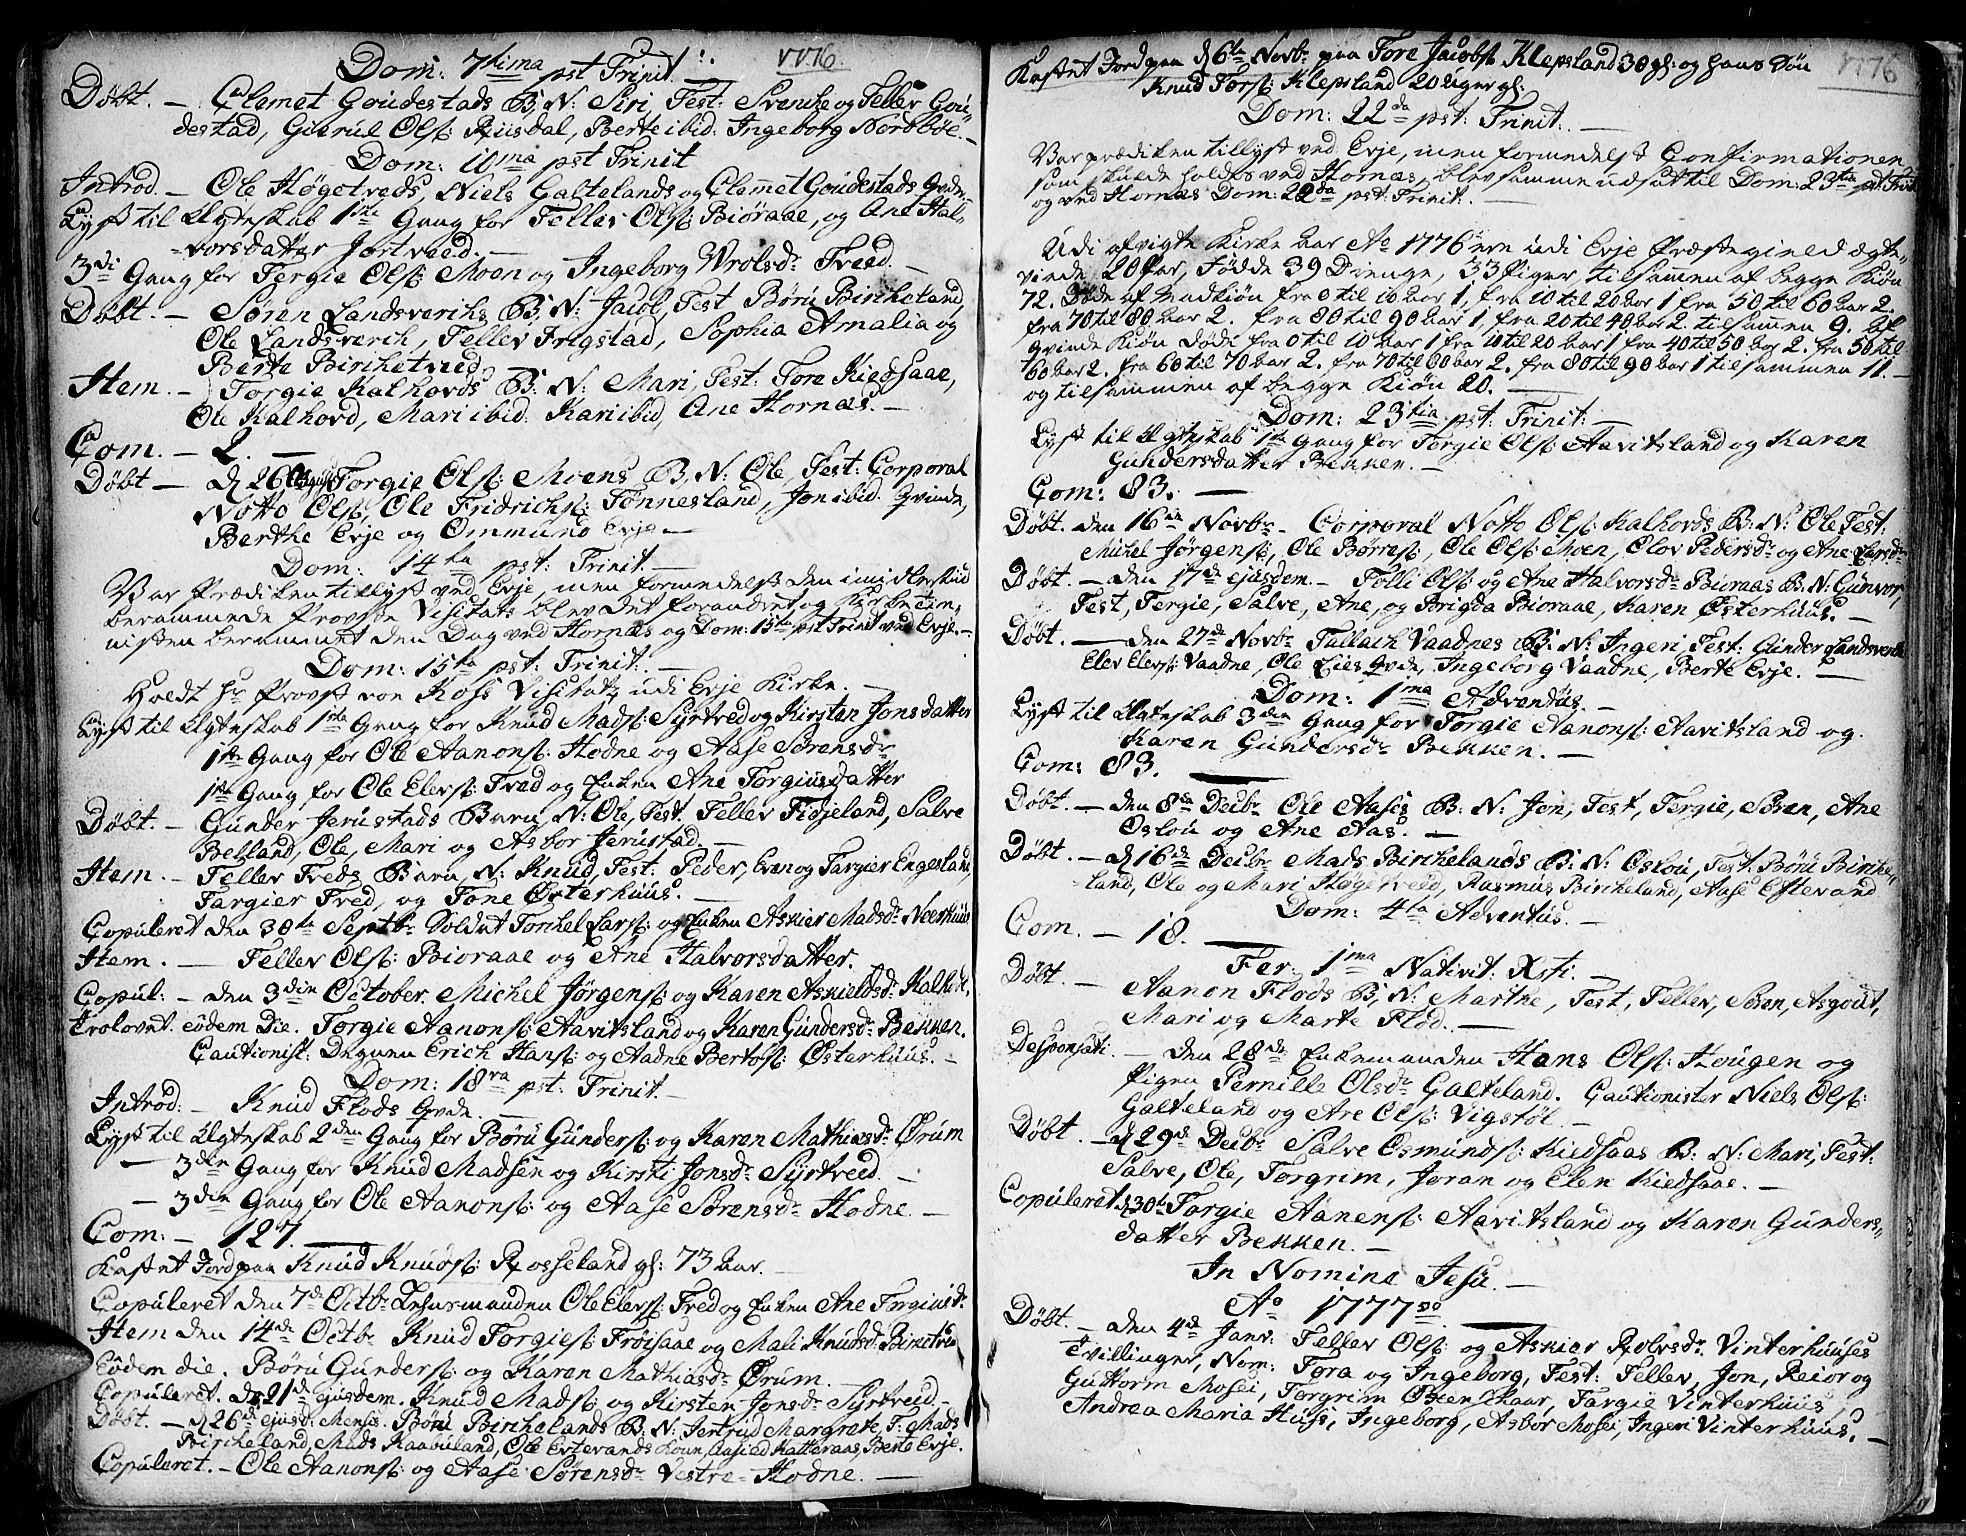 Dom: 7tima pst Trinit: 1776.
Døbt. – Clemet Goudestads B: N: Siri, Test: Svenke og Tellev Gou-
destad, Giurul Ols: Riisdal, Berte ibid: Ingeborg Nordbøe. –
Dom: 10ma pst Trinit
Introd. – Ole Høgetveds, Niels Galtelands og Clemet Goudestads Qvde.
Lyst til Egteskab 1ste Gang for Tellev Ols: Biøraae, og Ane Hal-
vorsdatter Jortveed. –
3di Gang for Tergie Ols: Moen og Ingeborg Wrolsdr Tveed. –
Døbt. – Søren Landsveriks B: N: Jacob, Test Børu Birkeland,
Ole Landsverik, Tellev Frigstad, Sophia Amalia og
Berte Birketveed.
Item. – Torgie Kalhovds B: N: Mari, Test: Tore Kiedsaae,
Ole Kalhovd, Mari ibid. Kari ibid, Ane Hornæs. –
Com. – 2. –
Døbt – d 26 Torgie Ols: Moens B: N: Ole, Test: Corporal
Notto Ols, Ole Fridrichs: Tønnesland, Jon ibid. Qvinde,
Berthe Evje og Ommund Evje –
Dom: 14ta pst: Trinit. –
Var Prædiken tillyst ved Evje, men formedelst den imidlertiid
berammede Provste Visitats blev det forandret og Kirketie-
nisten berammet den Dag ved Hornæs og Dom: 15ta pst Trinit ved Evje. –
Dom: 15ta pst: Trinit: –
Holdt Hr Provst von Koss Visitatz udi Evje Kirke. –
Lyst til Egteskab 1sta Gang for Knud Mads: Syrtved og Kirsten Jonsdatter
1ste Gang for Ole Aanons: Hodne og Aase Sørensdr
1ste Gang for Ole Elevs: Tved og Enken Ane Torgiusdatter
Døbt. – Gunder Jerustads Barn N: Ole, Test. Tellev Fidjeland, Salve
Belland, Ole, Mari og Asbor Jerustad. –
Item. – Tellev Treds Barn, N: Knud, Test: Peder, Even og Targier Engesland,
Targier Tved, og Tone Østerhuus. –
Copuleret den 30te Septbr Soldat Torkel Lars: og Enken Askier Madsdr Neerhuus
Item. – Tellev Ols: Bioraae og Ane Halvorsdatter.
Copul: – den 3die October. Michel Jørgens: og Karen Askieldsdr Kalhovd.
Trolovet. eodem Die. Torgie Aanons: Aavitsland og Karen Gundersdr Bekken.
Cautionist: Degnen Erich Hans: og Aadne Bertos: Østerhuus. –
Dom: 18va pst: Trinit. –
Introd: – Knud Flods Qvde. –
Lyst til Egteskab 2den Gang for Børu Gunders: og Karen Mathiasdr Ørum
– 3die Gang for Knud Madsen og Kirsti Jonsdr Syrtveed. –
– 3die Gang for Ole Aanons: og Aase Sørensdr Hodne. –
Com: – 127.
Kastet Jord paa Knud Knuds: Rosseland gl: 73 aar.
Copuleret den 7de Octbr Enkemanden Ole Elevs: Tved og Enken Ane Torgiusdr
Item den 14de Octbr Knud Torgies: Frøisaae og Mali Knudsdr
Eodem die. Børu Gunders: og Karen Mathiasdr Ørum. –
Copuleret. d 21de ejusdem. Knud Mads: og Kirsten Jonsdr Syrtveid. –
Døbt. – d 26de ejusd: Mensis. Børu Birkelands B: N: Jertrud Margrete, T: Mads
Birkeland, Mads Kaabuland, Ole Evtevands Kone, Berte Evje.
Copuleret. – Ole Aanons: og Aase Sørensdr Vestre-Hodne. –
Kastet Jord paa d 6te Novbr paa Tore Jacobs Klepsland 30 gl: og hans Søn 1776
Knud Tors: Klepsland 20 uger gl:
Dom: 22da pst: Trinit: –
Var prædiken tillyst ved Evje, men formedelst Confirmationen
som skulde holdes ved Hornæs, blev samme udsat til Dom: 23tia pst: Trinit
og ved Hornæs Dom: 22da pst: Trinit. –
Udi afvigte Kirke Aar Ao 1776 ere udi Evje Præstegield ægte-
viede 20 Par, Fødde 39 Drenge, 33 Piger tilsammen af begge Kiøn
72. Døde af Mandkiøn fra 0 til 10 aar 1, fra 10 til 20 aar 1 fra 50 til 60 aar 2.
fra 70 til 80 aar 2. fra 80 til 90 aar 1, fra 20 til 40 aar 2. tilsammen 9. Af
Qvinde Kiøn Døde fra 0 til 10 aar 1 fra 10 til 20 aar 1 fra 40 til 50 aar 2. fra 50 til
60 aar 2. fra 60 til 70 aar 2. fra 70 til 80 aar 2. fra 80 til 90 aar 1 tilsammen 11. –
og tilsammen af begge Kiøn 20. –
Dom: 23tia pst: Trinit: –
Lyst til Egteskab 1ste Gang for Tergie Ols: Aavitsland og Karen
Gundersdatter Bekken. –
Com: 83. –
Døbt. den 16de Novbr – Corporal Notto Ols: Kalhovds B: N: Ole Test:
Michel Jørgens:, Ole Børres:, Ole Ols: Moen, Olov Pedersdr og Ane Larsdr
Døbt. – den 17de ejusdem. – Folli Ols: og Ane Halvorsdr Bioraas B: N: Gunvor,
Test, Tergie, Salve, Ane, og Brigda Bioraae, Karen Østerhuus. –
Døbt. – den 27de Novbr Tallak Vaadnes B: N: Ingeri, Test: Gunder Landsverk
Elev Elevs: Vaadne, Ole Lies Qvde, Ingeborg Vaadne, Berte Evje. –
Dom: 1ma Adventus. –
Lyst til Egteskab 3die Gang for Torgie Aanons: Aavitsland og
Karen Gundersdr Bekken. –
Com: 83. –
Døbt. – den 8de Decbr Ole Aases B: N: Jon, Test, Tergie, Søren, Ane
Oslou og Ane Aas. –
Døbt. – d 16de Decbr Mads Birkelands B: N: Oslou, Test: Børu Birke-
land, Ole og Mari Høgetveed, Rasmus Birkeland, Aase Eftevand
Dom: 4ta Adventus. –
Com. – 18. –
Fer. 1ma Nativit: Xsti. –
Døbt. – Aanon Flods B: N: Marthe, Test, Tellev, Søren, Asgout,
Mari og Marte Flod. –
Desponsati. – den 28de Enkemanden Hans Ols: Hougen og
Pigen Pernille Olsdr Galteland. Cautionister Niels Ols:
Galteland og Are Ols: Vigstøl. –
Døbt. – d 29de Decbr Salve Osmunds: Kiedsaas B: N: Mari, Test:
Salve, Ole, Torgrim, Joran og Elen Kiedsaae. –
Copuleret d 30te Torgie Aanens: Aavitsland og Karen Gunders-
datter Bekken. –
In Nomine Jesu. –
Ao 1777
Døbt. – den 4de Janv: Tellev Ols: og Askier Rolvsdr Vinterhuuses
Tvillinger, Nom: Tora og Ingeborg, Test: Tellev, Jon, Reior og
Guttorm Mosei, Torgrim Øsenskaar, Targie Vinterhuus,
Andrea Maria Huss, Ingeborg, Asbor Mosei, Ingeri Vinterhuus. –